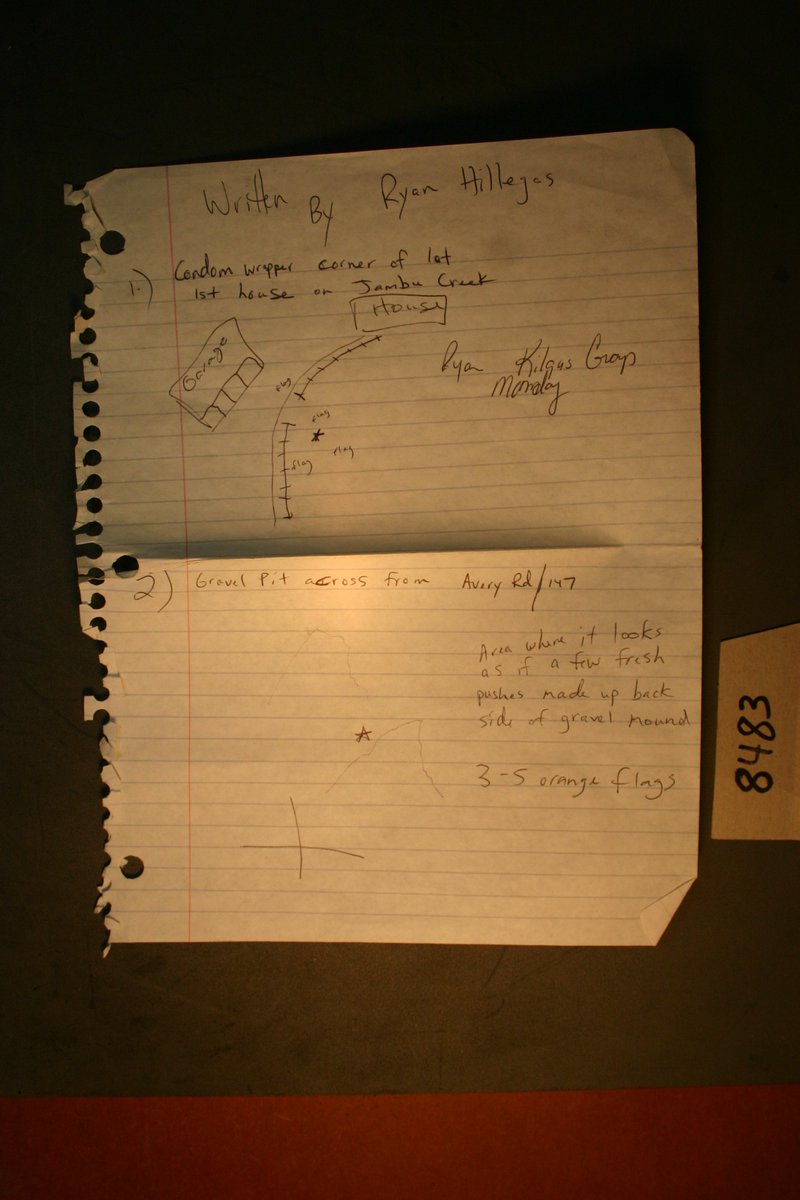 Written By Ryan Hillegas
1.) Condom wrapper corner of lot
1st house on Jambu Creek
House
Garage
Ryan Kilgus Group
Monday
flag
flag
flag
flag
2) Gravel Pit across from Avery Rd/147
Area where it looks
as if a few fresh
pushes made up back
side of gravel mound
3-5 orange flags
8483